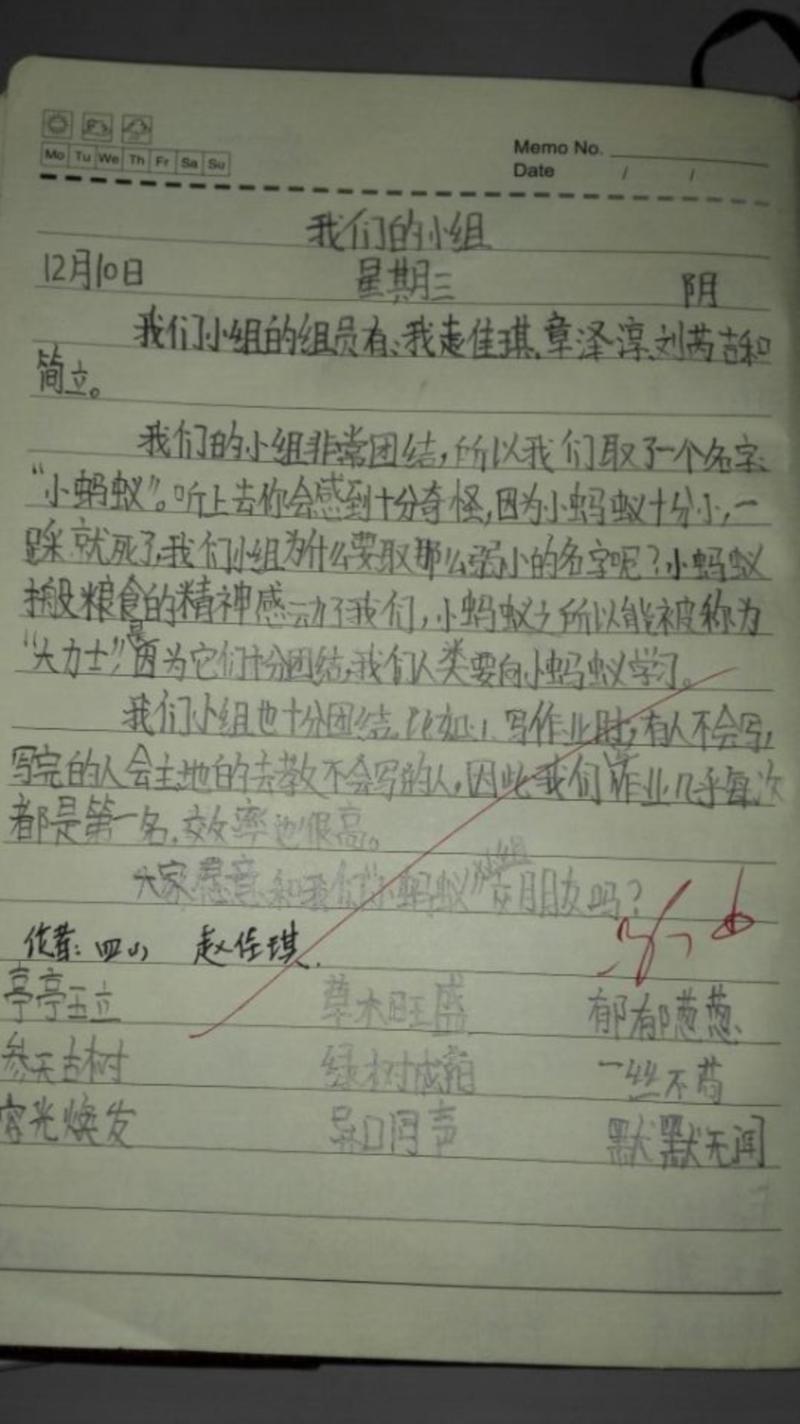 Memo No.
Mo Tu We Th Fr Sa Su
Date / /
我们的小组
12月10日 星期三 阴
我们小组的组员有:我走佳琪、章泽淳、刘芮吉和
简立。
我们的小组非常团结,所以我们取了一个名字:
“小蚂蚁”。听上去你会感到十分奇怪,因为小蚂蚁十分小,一
踩就死了,我们小组为什么要取那么弱小的名字呢?小蚂蚁
搬粮食的精神感动了我们,小蚂蚁之所以能被称为
“大力士”,是因为它们十分团结,我们人类要向小蚂蚁学习。
我们小组也十分团结,比如:写作业时,有人不会写,
写完的人会主地的去教不会写的人,因此我们作业几乎每次
都是第一名,效率也很高。
大家愿意和我们“小蚂蚁”小组交朋友吗?
作者:四山 赵佳琪.
亭亭玉立 草木旺盛 郁郁葱葱、
参天古树 绿树成荫 一丝不苟
容光焕发 异口同声 默默无闻